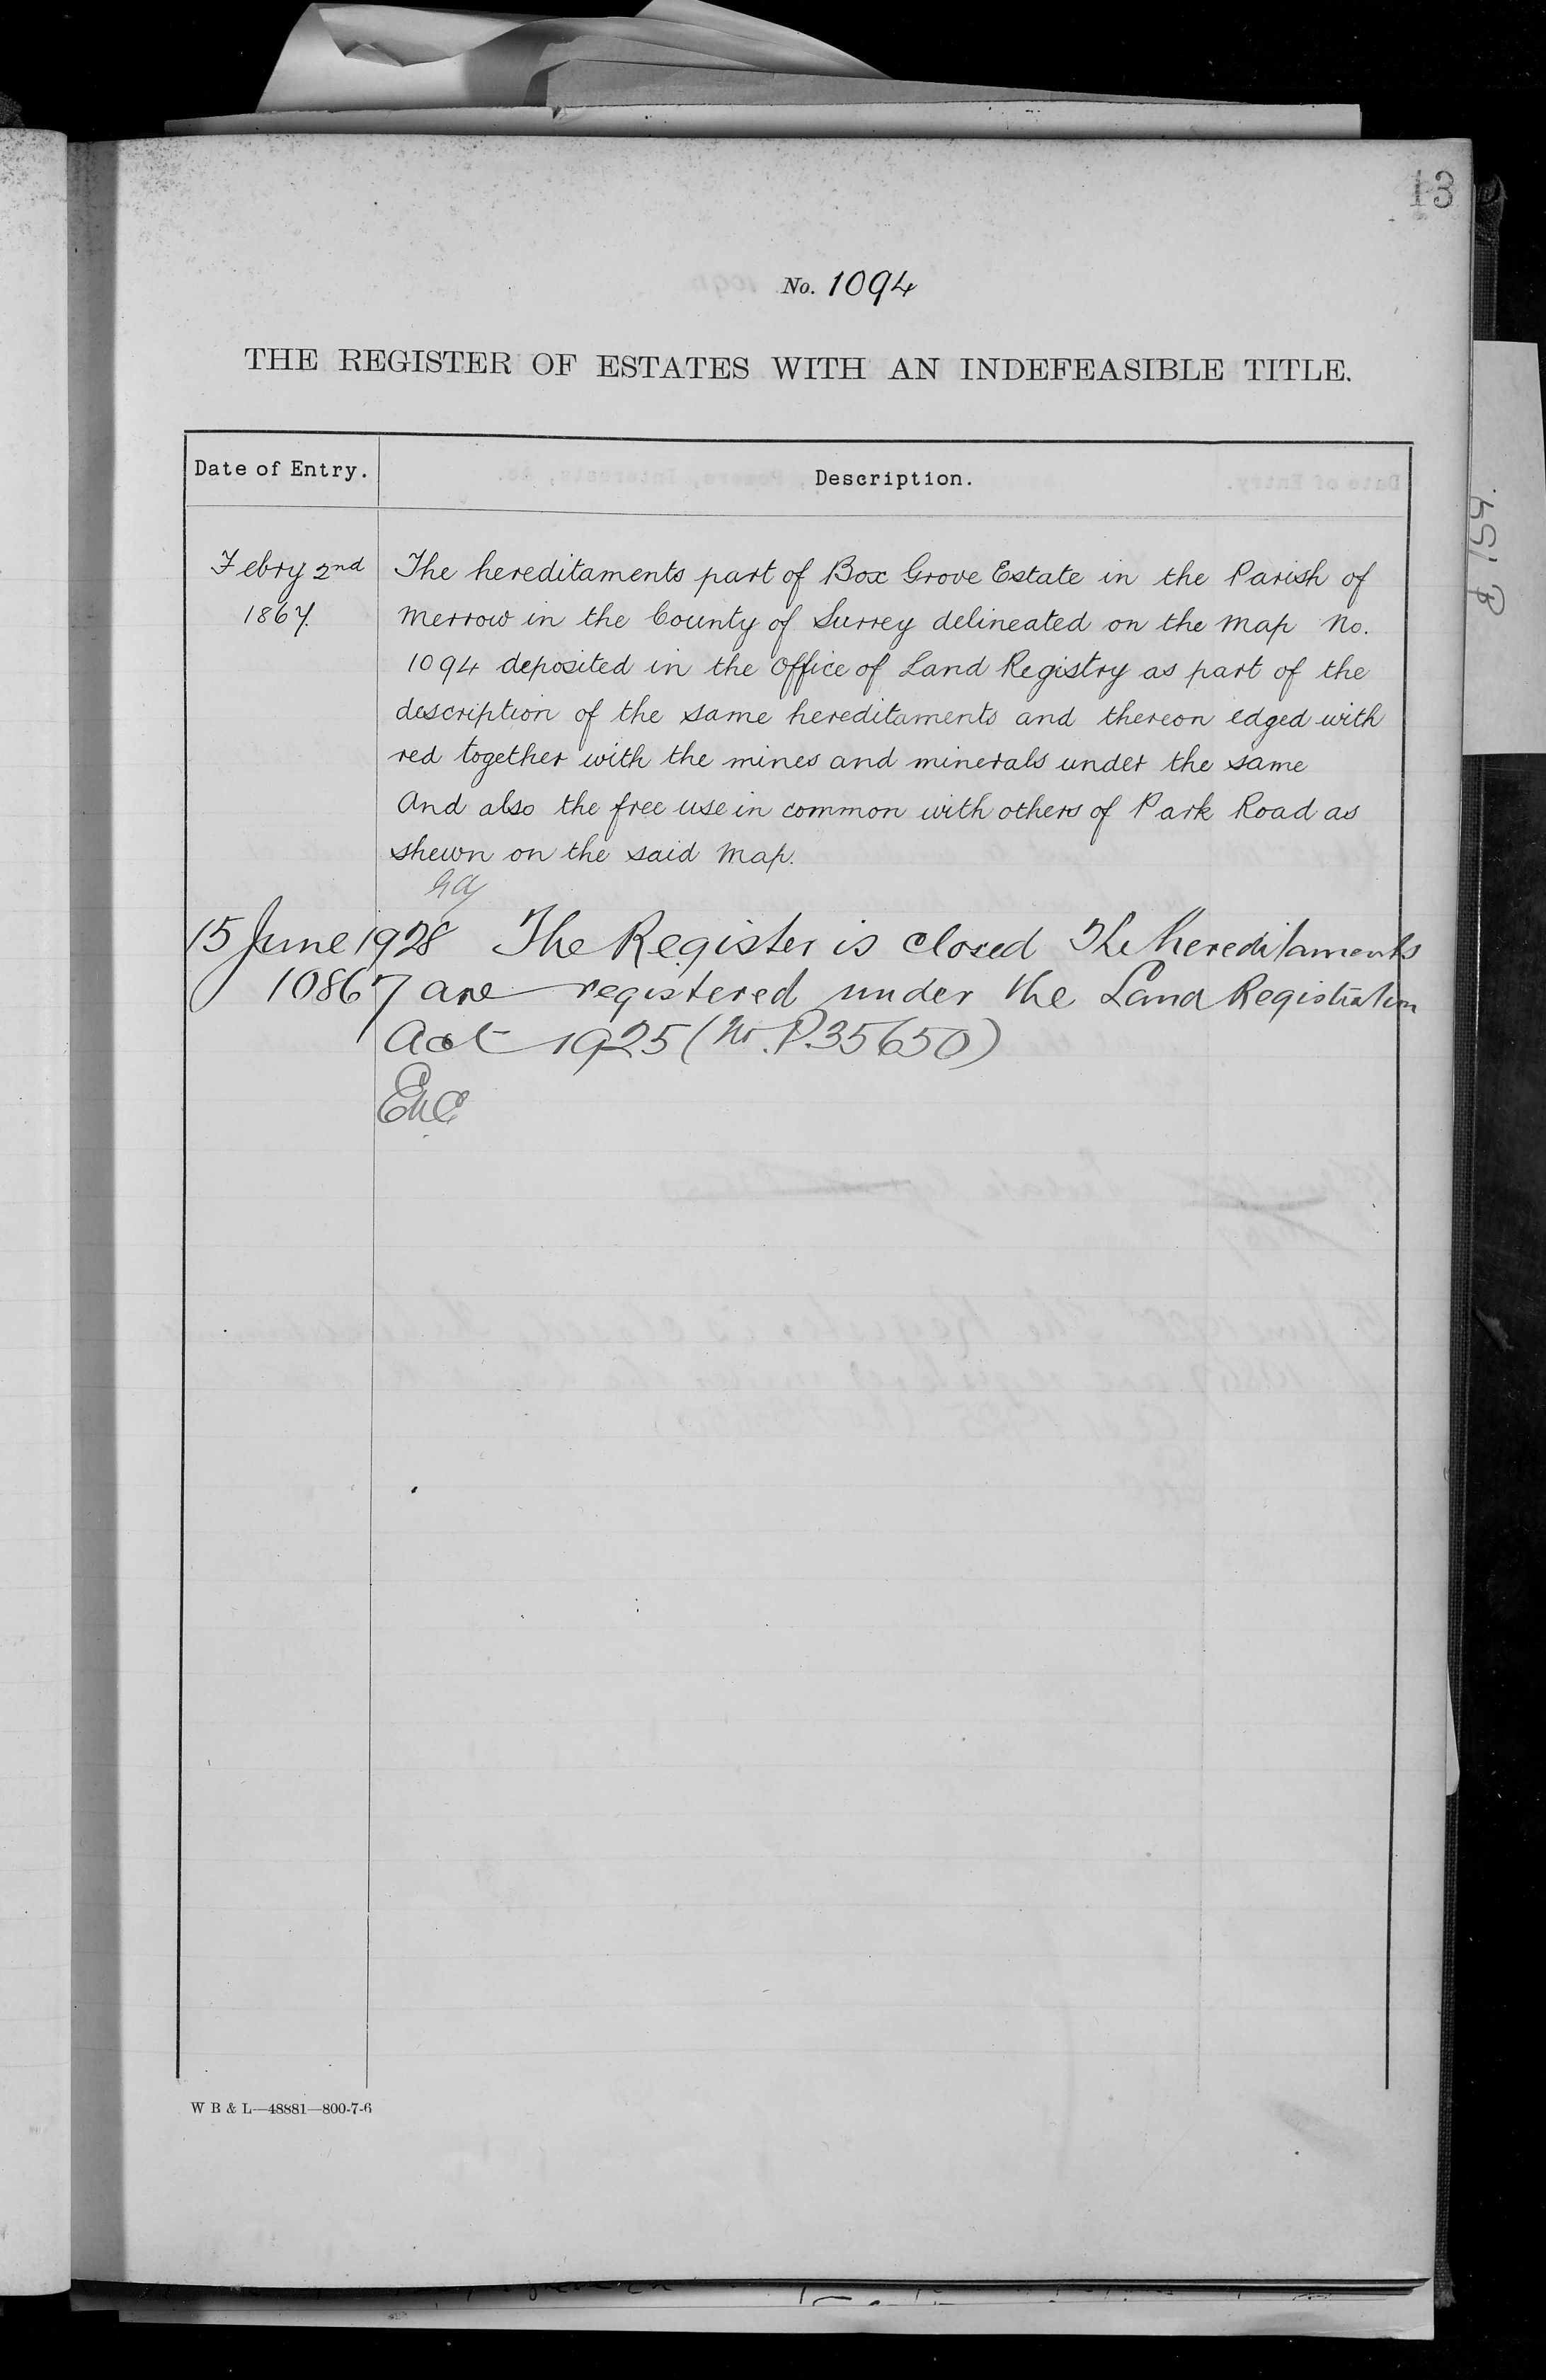 13
No. 1094
THE REGISTER OF ESTATES WITH AN INDEFEASIBLE TITLE.
Date of Entry. Description.
Febry 2nd The hereditaments part of Box Grove Estate in the Parish of
1867. Merrow in the County of Surrey delineated on the Map No.
1094 deposited in the Office of Land Registry as part of the
description of the same hereditaments and thereon edged with
red together with the mines and minerals under the same
And also the free use in common with others of Park Road as
shewn on the said Map.
15 June 1928 The Register is closed The hereditaments
10867 are registered under the Land Registration
Act 1925 (No. P.35650)
W B & L—48881—800-7-6
159.